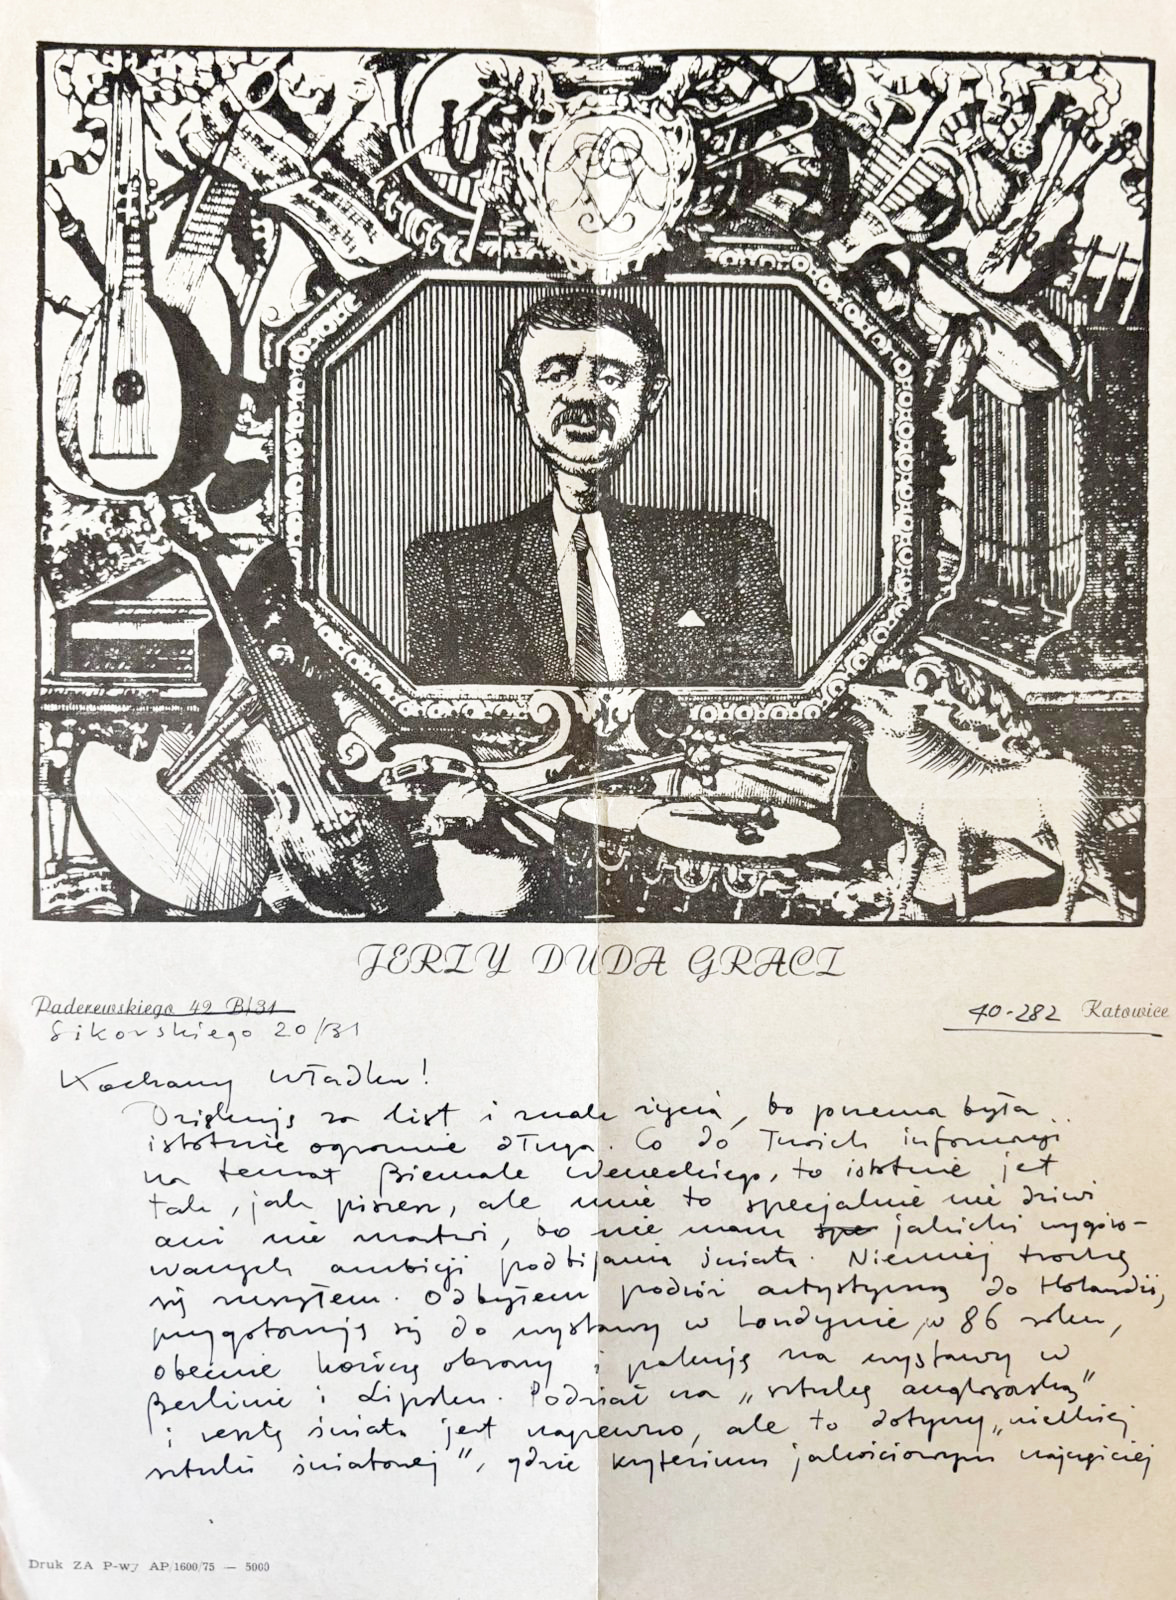 JERZY DUDA GRACZ
Paderewskiego 42 B/31
Sikorskiego 20/31
40-282 Katowice
Kochany Władku!
Dziękuję za list i znak życia, bo przerwa była
istotnie ogromnie długa. Co do Twoich informacji
na temat Biennale Weneckiego, to istotnie jest
tak, jak piszesz, ale mnie to specjalnie nie dziwi
ani nie martwi, bo nie mam spe jakichś wygóro-
wanych ambicji podbijania świata. Niemniej trochę
się ruszyłem. Odbyłem podróż artystyczną do Holandii,
przygotowuję się do wystawy w Londynie w 86 roku,
obecnie kończę obrazy i pakuję na wystawy w
Berlinie i Lipsku. Podział na „sztukę anglosaską"
i resztę świata jest napewno, ale to dotyczy „wielkiej
sztuki światowej", gdzie kryterium jakościowym najczęściej
Druk ZA P-wy AP/1600/75 — 5000